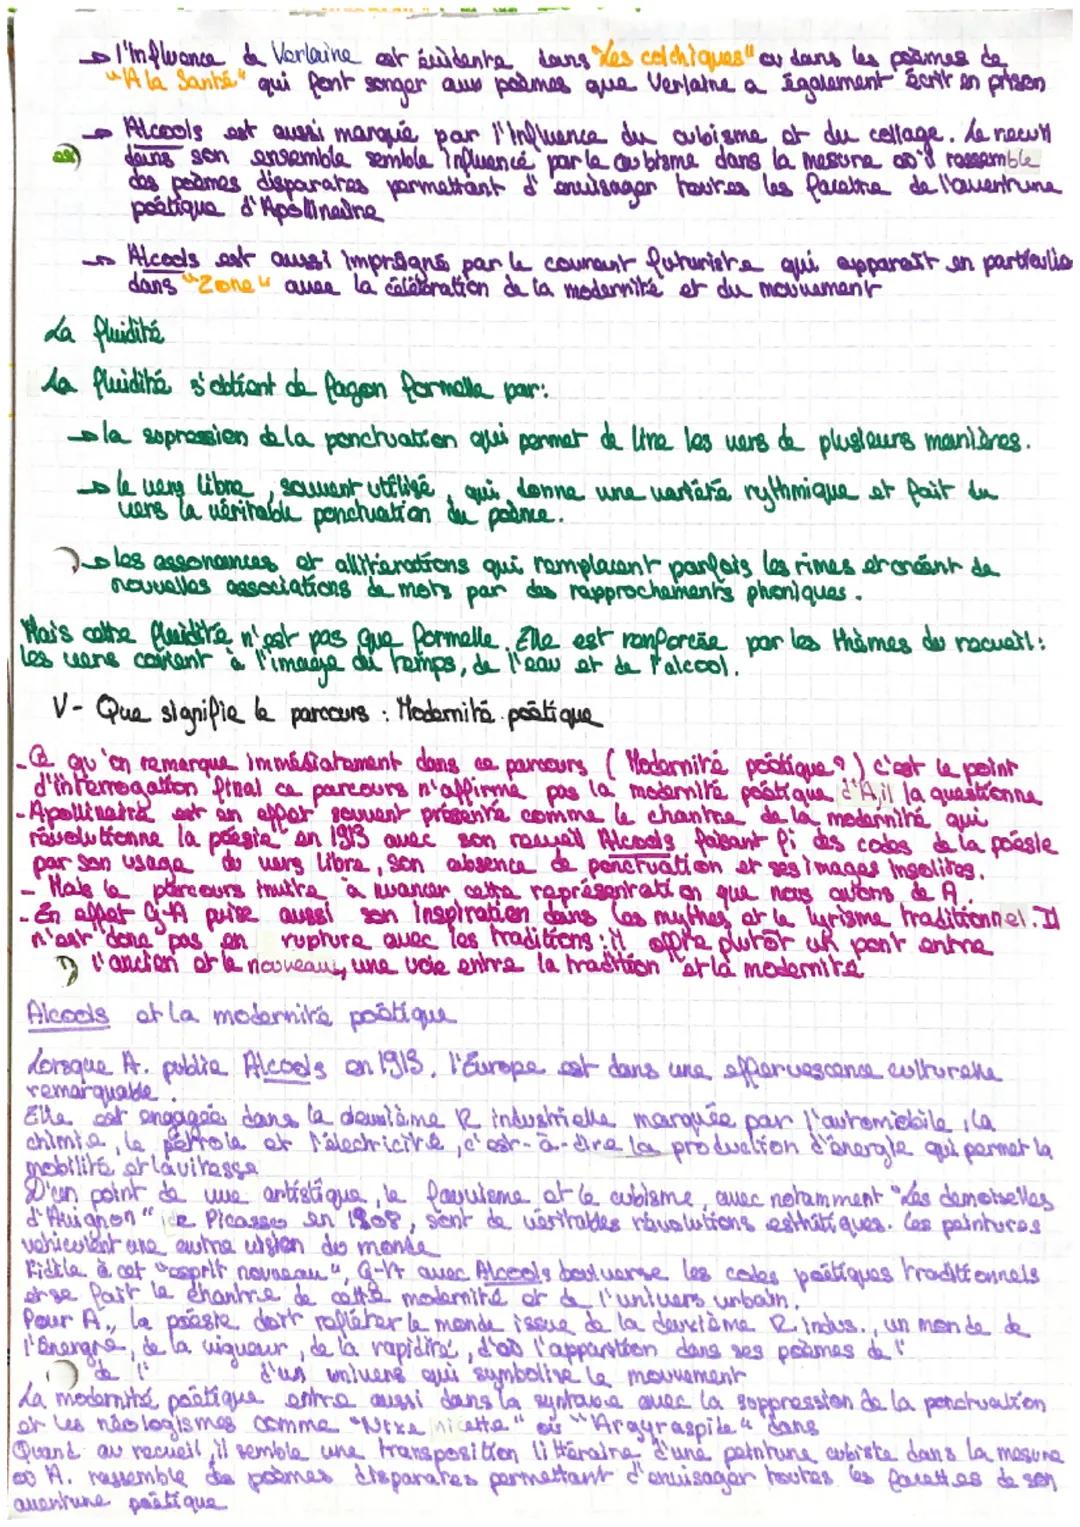 → l'Influence de Verlaine est évidente dans "Les colchiques" ou dans les poèmes de
"A la Santé" qui font songer aux poèmes que Verlaine a également écrit en prison
→ Alcools est aussi marquée par l'Influence du cubisme et du collage. Le recueil
dans son ensemble semble influencé par le cubisme dans la mesure où il rassemble
des poèmes disparates permettant d'envisager toutes les facettes de l'aventure
poétique d'Apollinaire
→ Alcools est aussi imprégné par le courant futuriste qui apparaît en particulier
dans "Zone" avec la célébration de la modernité et du mouvement
La fluidité
La fluidité s'obtient de façon formelle par:
→ la supression de la ponctuation qui permet de lire les vers de plusieurs manières.
→ le vers libre, souvent utilisé, qui donne une variété rythmique et fait du
vers la véritable ponctuation du poème.
→ les assonances et allitérations qui remplacent parfois les rimes et créent de
nouvelles associations de mots par des rapprochements phoniques.
Mais cette fluidité n'est pas que formelle. Elle est renforcée par les thèmes du recueil:
les vers coulent à l'image du temps, de l'eau et de l'alcool.
V- Que signifie le parcours : Modernité poétique
- Ce qu'on remarque immédiatement dans ce parcours ( Modernité poétique ? ) c'est le point
d'interrogation final ce parcours n'affirme pas la modernité poétique d'A, il la questionne
- Apollinaire est en effet souvent présenté comme le chantre de la modernité qui
révolutionne la poésie en 1913 avec son recueil Alcools faisant fi des codes de la poésie
par son usage du vers libre, son absence de ponctuation et ses images insolites.
- Mais le parcours invite à nuancer cette représentation que nous avons de A.
- En effet G-A puise aussi son inspiration dans les mythes et le lyrisme traditionnel. Il
n'est donc pas en rupture avec les traditions : il offre plutôt un pont entre
l'ancien et le nouveau, une voie entre la tradition et la modernité
Alcools et la modernité poétique
Lorsque A. publie Alcools en 1913, l'Europe est dans une effervescence culturelle
remarquable.
Elle est engagée dans la deuxième R industrielle marquée par l'automobile, la
chimie, le pétrole et l'électricité, c'est-à-dire la production d'énergie qui permet la
mobilité et la vitesse
D'un point de vue artistique, le fauvisme et le cubisme, avec notamment "Les demoiselles
d'Avignon" de Picasso en 1908, sont de véritables révolutions esthétiques. Ces peintures
véhiculent une autre vision du monde
Fidèle à cet "esprit nouveau", G-A avec Alcools bouluerse les codes poétiques traditionnels
et se fait le chantre de cette modernité et de l'univers urbain.
Pour A., la poésie doit refléter le monde issue de la deuxième R. indus., un monde de
l'énergie, de la vigueur, de la rapidité, d'où l'apparition dans ses poèmes de l'
de l' d'un univers qui symbolise le mouvement
La modernité poétique entre aussi dans la syntaxe avec la suppression de la ponctuation
et les néologismes comme "Nixe nicette" ou "Argyraspide" dans
Quant au recueil, il semble une transposition littéraire d'une peinture cubiste dans la mesure
où A. rassemble des poèmes disparates permettant d'envisager toutes les facettes de son
aventure poétique